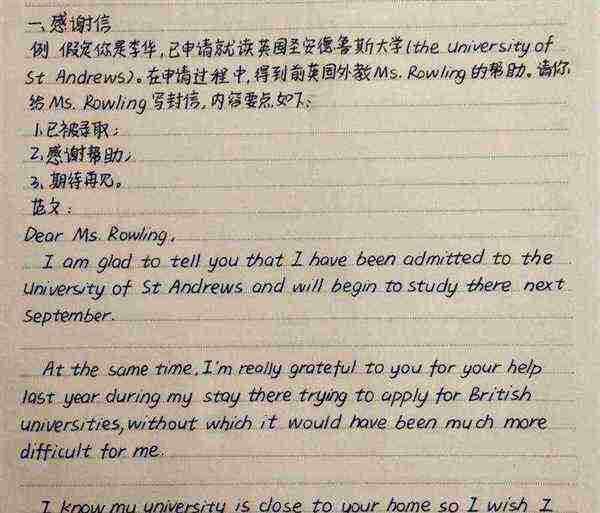 一、感谢信
例 假定你是李华，已申请就读英国圣安德鲁斯大学(the university of
St Andrews)。在申请过程中，得到前英国外教Ms. Rowling的帮助。请你
给Ms. Rowling写封信，内容要点如下：
1.已被录取；
2.感谢帮助；
3.期待再见。
范文：
Dear Ms. Rowling,
I am glad to tell you that I have been admitted to the
University of St Andrews and will begin to study there next
September.
At the same time, I'm really grateful to you for your help
last year during my stay there trying to apply for British
universities, without which it would have been much more
difficult for me.
I know my university is close to your home so I wish I